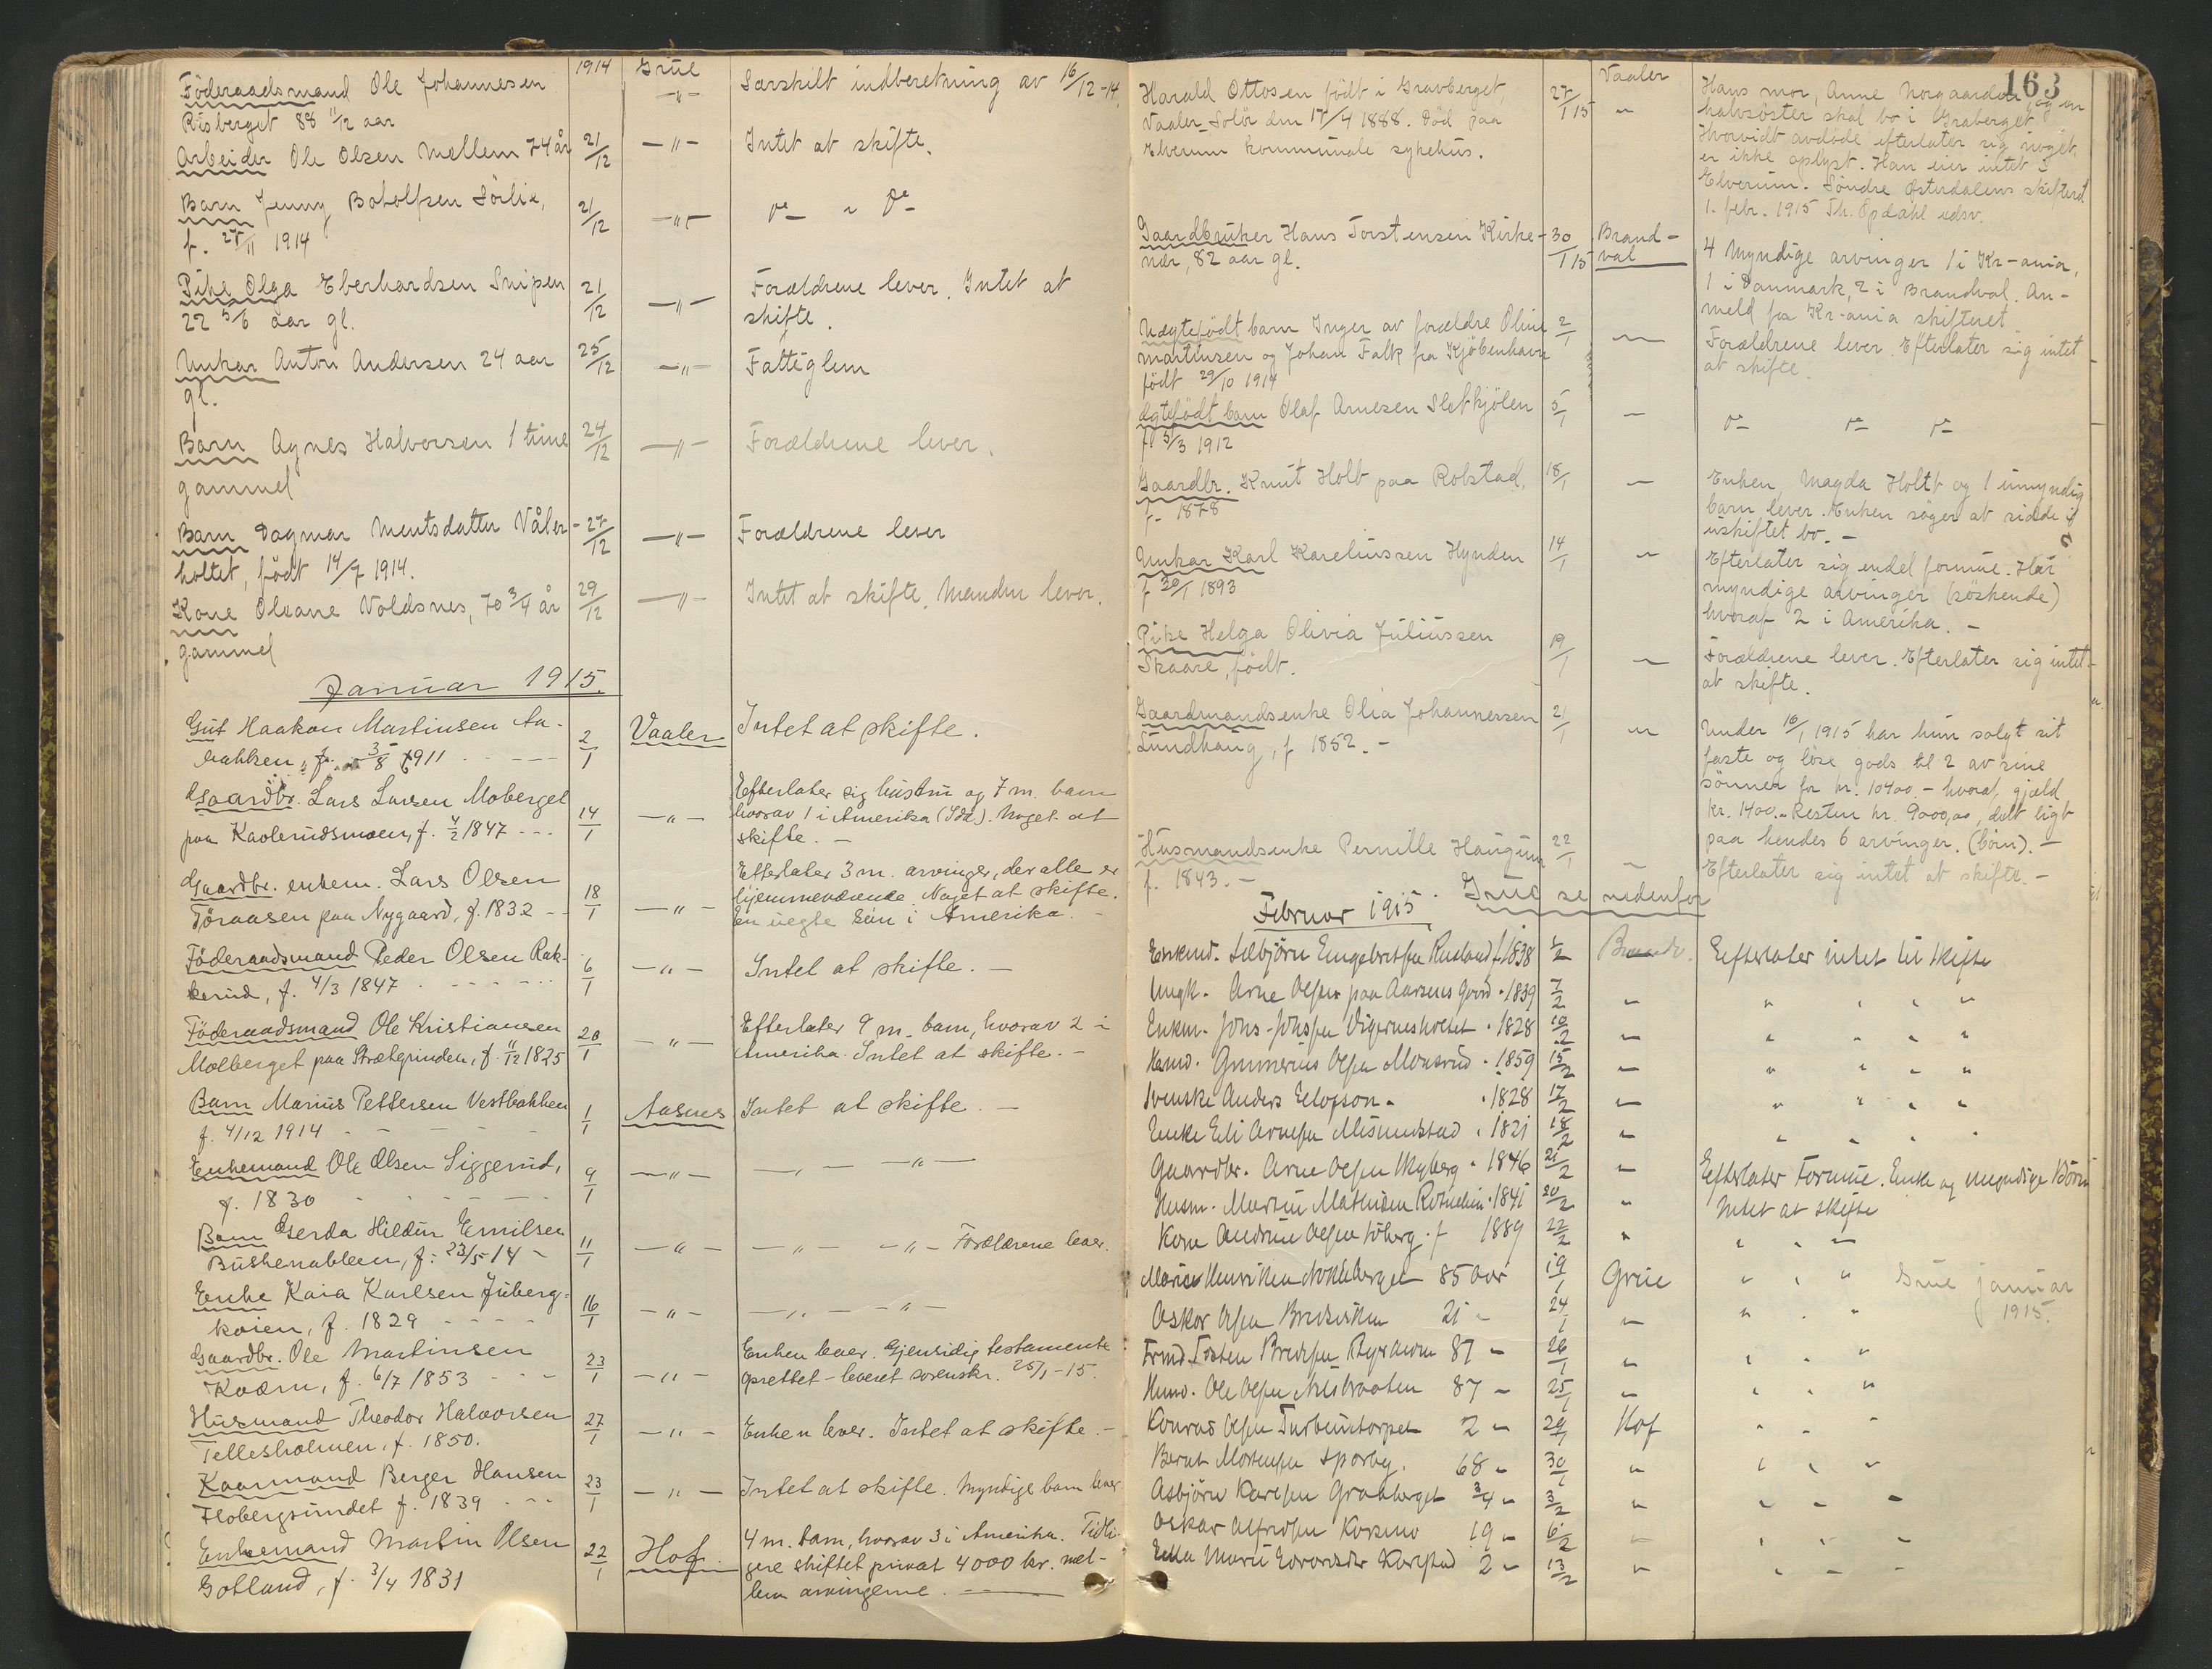 1914 Grue
Föderaadsmand Ole Johannesen -"- Særskilt indberetning av 16/12-14.
Risberget 88 11/12 aar
Arbeider Ole Olsen Mellem 74 år 21/12 -"- Intet at skifte.
Barn Jenny Botolfsen Sörlie, 21/12 -"-
f. 28/11 1914
Pike Olga Eberhardsen Snipen 21/12 -"- Forældrene lever. Intet at
22 5/6 aar gl. skifte.
Unkar Anton Andersen 24 aar 25/12 -"- Fattiglem
gl.
Barn Agnes Halvorsen 1 time 24/12 -"- Forældrene lever.
gammel
Barn Dagmar Mentsdatter Våler- 27/12 -"- Forældrene lever
holtet, født 14/7 1914.
Kone Oleane Voldsnes, 70 3/4 år 29/12 -"- Intet at skifte. Manden lever.
gammel
Januar 1915.
Gut Haakon Martinsen Aa- 2/1 Vaaler Intet at skifte.
bakken, f. 3/8 1911
Gaardbr. Lars Larsen Moberget 14/1 -"- Efterlater sig hustru og 7 m. barn
paa Kaolerudsmoen, f. 4/2 1847 hvorav 1 i Amerika (Ida). Noget at
skifte. -
Gaardbr. enkem. Lars Olsen 18/1 -"- Efterlater 3 m. arvinger, der alle er
Töraasen paa Nygaard, f. 1832 hjemmeværende. Noget at skifte.
En uegte sön i Amerika. -
Föderaadsmand Peder Olsen Rak- 6/1 -"- Intet at skifte. -
kerud, f. 4/3 1847
Föderaadsmand Ole Kristiansen 20/1 -"- Efterlater 9 m. barn, hvorav 2 i
Molberget paa Strætgrinden, f. 11/12 1825 Amerika. Intet at skifte. -
Barn Marius Pettersen Vestbakken 1/1 Aasnes Intet at skifte. -
f. 4/12 1914
Enkemand Ole Olsen Siggerud, 9/1 -"- -"- -"-
f. 1830
Barn Gerda Hildur Emilsen 11/1 -"- -"- -"- Forældrene lever.
Buskenabben, f. 23/5 14 -
Enke Kaia Karlsen Juberg- 16/1 -"- -"- -"-
koien, f. 1829
Gaardbr. Ole Martinsen 23/1 -"- Enken lever. Gjensidig testamente
Kværn, f. 6/7 1853 oprettet - leveret sorenskr. 25/1-15.
Husmand Theodor Halvorsen 27/1 -"- Enken lever. Intet at skifte. -
Tellesholmen, f. 1850.
Kaarmand Berger Hansen 23/1 -"- Intet at skifte. Myndige barn lever.
Flobergsundet f. 1839
Enkemand Martin Olsen 22/1 Hof 4 m. barn, hvorav 3 i Amerika. Tidli-
Gotland, f. 3/4 1831 gere skiftet privat 4000 kr. mel-
lem arvingerne.
163
Harald Ottosen födt i Gravberget, 27/1 15 Vaaler Hans mor, Anne Norgaarden og en
Vaaler-Solör den 17/4 1888. Död paa " halvsöster skal bo i Graberget.
Elverum kommunale sykehus. Hvorvidt avdöde efterlater sig noget,
er ikke oplyst. Han eier intet i
Elverum. Söndre Østerdalens skifteret
1. febr. 1915 Th. Opdahl edsv.
Gaardbruker Hans Torstensen Kirke- 30/1 15 Brand-
nær, 82 aar gl. val 4 Myndige arvinger 1 i Kr-ania,
1 i Danmark, 2 i Brandval. An-
meld fra Kr-ania skifteret.
Uægtefödt barn Inger av forældre Oline 2/1 " Forældrene lever. Efterlater sig intet
Martinsen og Johan Falk fra Kjöbenhavn at skifte.
födt 29/10 1914
Ægtefödt barn Olaf Arnesen Sletkjölen 5/1 "
f 5/3 1912
Gaardbr. Knut Holt paa Rolstad, 18/1 " Enken Magda Holt og 1 umyndig
f. 1878 barn lever. Enken söger at sidde i
uskiftet bo. -
Unkar Karl Kareliussen Hynden 14/1 " Efterlater sig endel formue. Har
f 30/1 1893 myndige arvinger (söskende)
hvoraf 2 i Amerika. -
Pike Helga Olivia Juliussen 19/1 " Forældrene lever. Efterlater sig intet
Skaare, födt. at skifte.
Gaardmandsenke Olia Johannessen 21/1 " Under 16/1 1915 har hun solgt sit
Lundhaug, f 1852. - faste og löse gods til 2 av sine
sönner for kr. 10400.- hvoraf gjæld
kr. 1400.- Resten kr. 9000,00, delt ligt
paa hendes 6 arvinger. (börn). -
Husmandsenke Pernille Haugun 22/1 " Efterlater sig intet at skifte. -
f. 1843. -
Grue se nedenfor
Februar 1915
Enkmd. Esebjörn Engebretsen Rusland f 1838 Efterlater intet til skifte
Ungk. Arne Olsen paa Aarsnes Gaard " 1839 7/2 "
Enkm. Johs Johsen Vigernesholtet " 1828 10/2 "
Husmd. Gunnerius Olsen Monsrud " 1859 15/2 "
Svenske Anders Elofson " 1828 17/2 "
Enke Eli Arnesen Mismestad " 1821 18/2 "
Gaardbr. Arne Olsen Nyberg " 1846 21/2 " Efterlater Formue. Enke og myndige Börn
Husm. Martin Mathisen " 1841 20/2 " Intet at skifte
Kone Andrine Olsen Löberg f 1889 22/2 "
Marie Henriksen 85 Aar 19/1 Grue " Grue januar
Oskar Olsen 21 " 24/1 " 1915.
Frmd. Torsten Bredesen 87 " 26/1 "
Husmd. Ole Olsen 87 " 25/1 "
Konrad Olsen Turbentorpet 2 " 29/1 Hof
Bernt Mortensen Sparby. 68 " 30/1 "
Asbjörn Karlsen Graaberget 3/4 " 3/2 "
Oskar Alfredsen Kosmo 19 " 6/2 "
Ella Marie Edvardsdr Karlstad 2 " 13/2 "